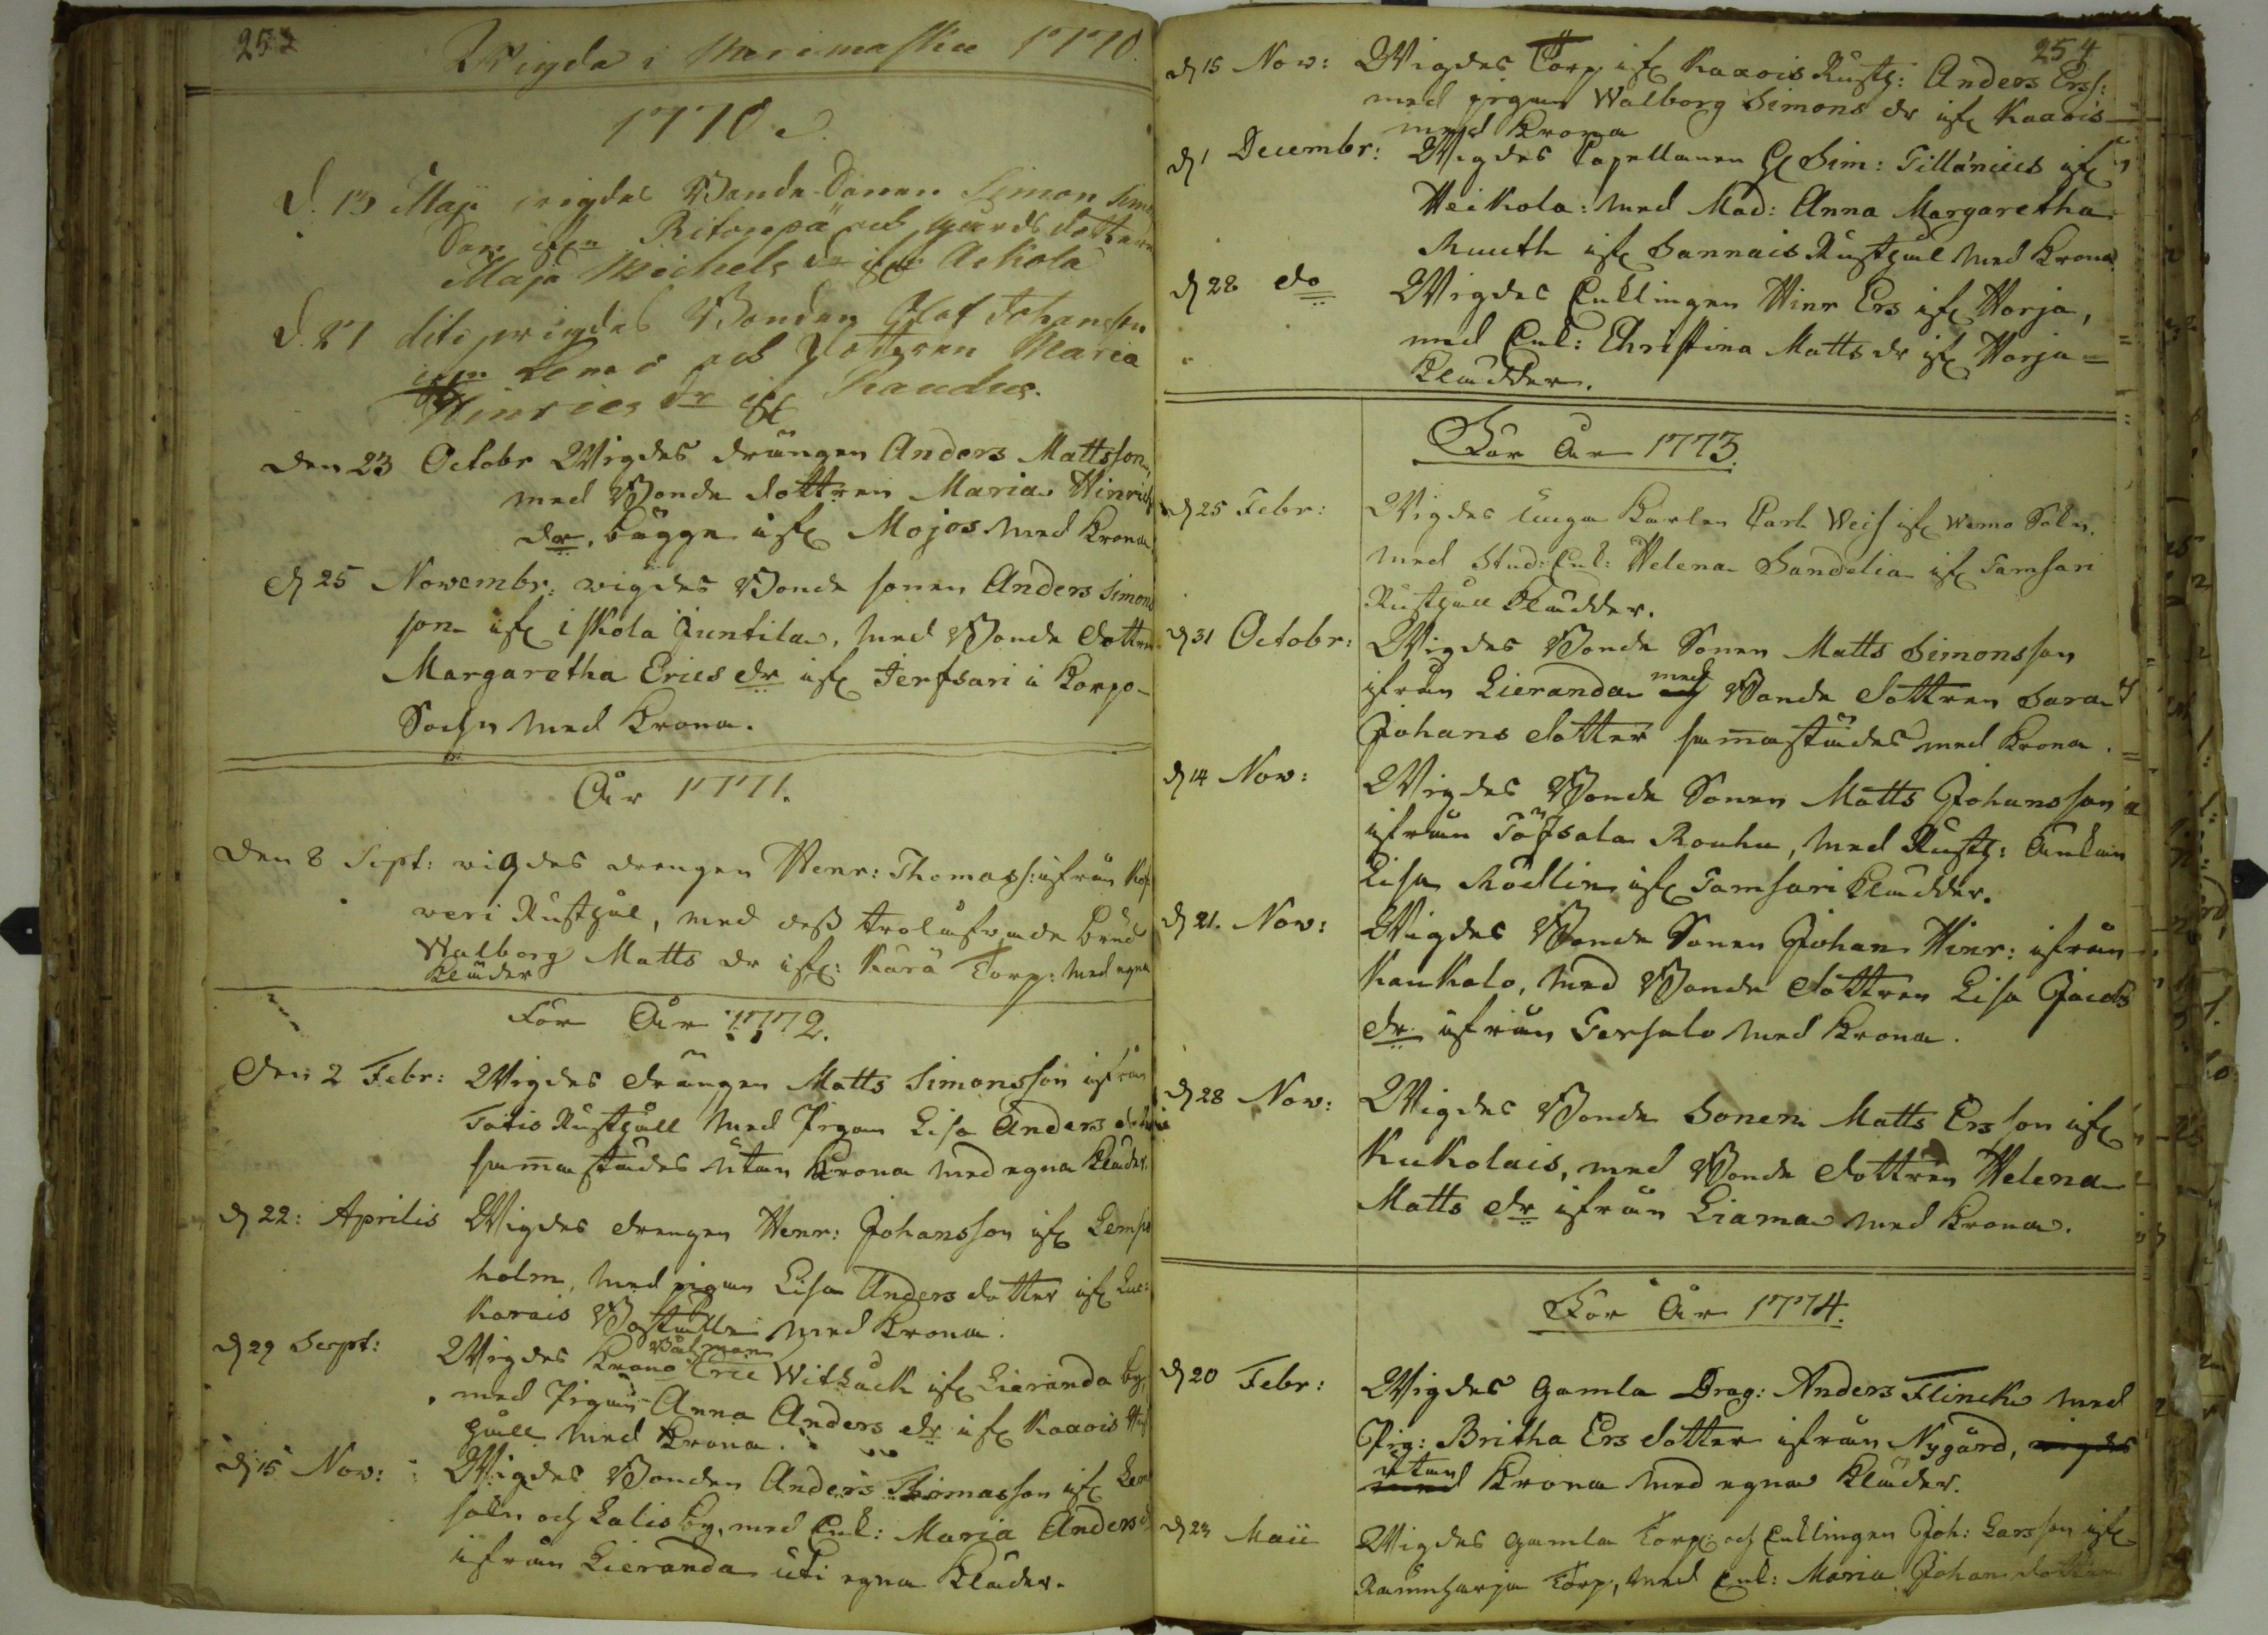 253
Wigde i Merimasku 1770.
1770.
d. 13 Maji wigdes Bonde Sonen Simon Simons
Son ifrån Ritonpä och gårds dottren
Maja Michels dr ifr Askola
d. 27 dito wigdes Bonden Olof Johansson
ifrån och Dottren Maria
Hinrics dr ifr
Den 23 Octobr Wigdes drängen Anders Mattsson,
med Bonde dottren Maria Hinrichs
dr, bägge ifr Mojos med Krona
d 25 Novembr: wigdes Bonde sonen Anders Simons
son ifr iskola Juntila, med Bonde dottren
Margaretha Erics dr ifr Jerfsari i Korpo
Sochn med Krona.
År 1771.
Den 8 Sept: wigdes drengen Henr: Thomass: ifrån
weri Rusthål, med dess trolåfwade brud
Walborg Matts dr ifr: Karä Torp: med egna
Kläder
För År 1772.
Den 2 Febr: Wigdes drängen Matts Simonsson ifrån
Tatis Rusthåll med Pigan Lisa Anders dotter
sammastädes utan Krona med egna Kläder.
d 22: Aprilis Wigdes drengen Henr: Johansson ifr Lemsis
holm, med pigan Lisa Anders dotter ifr Luc:
karais Boställe med Krona.
d 29 Sept: Wigdes Krono Båtzman Eric Witback ifr Lieranda by,
med Pigan Anna Anders dr ifr Kaavis Rust
håll med Krona.
d 15 Nov: Wigdes Bonden Anders Thomasson ifr Lem
sokn och Lalis by, med Enk: Maria Anders d
ifrån Lieranda uti egna Kläder.
254
d 15 Nov: Wigdes Torp. ifr Kaavois Rusth: Anders Erss:
med pigan Walborg Simons dr ifr Kaavois
med Krona
d 1 Decembr: Wigdes Capellanen H Sim: Tillänius ifr
Heikola: med Mad: Anna Margaretha
Ruuth ifr Sannais Rusthål med Krona
d 28 do Wigdes Enklingen Hinr Ers ifr Harja,
med Enk: Christina Matts dr ifr Harja
Kläder.
För År 1773.
d 25 Febr: Wigdes unga Karlen Carl Weis ifr Wemo Sokn.
med Stud: Enk: Helena Sandelia ifr Tamsari
Rusthåll Klädder.
d 31 Octobr: Wigdes Bonde Sonen Matts Simonsson
ifrån Lieranda med Bonde dottren Sara
Johans dotter sammastädes med Krona.
d 14 Nov: Wigdes Bonde Sonen Matts Johansson
ifrån Töfsala Rouhu, med Rusth: Änkan
Lisa Rödlin ifr Tamsari Klädder.
d 21. Nov: Wigdes Bonde Sonen Johan Hinr: ifrån
Kaukalo, med Bonde dottren Lisa Jacobs
dr ifrån Tersalo med Krona.
d 28 Nov: Wigdes Bonde Sonen Matts Ersson ifr
Kukolais, med Bonde dottren Helena
Matts dr ifrån Liama med Krona.
För År 1774.
d 20 Febr: Wigdes gamla Drag: Anders Flinck med
Pig: Britha Ers dotter ifrån Nygård, wigdes
utan Krona med egna Kläder.
d 23 Maii Wigdes gamla Torp: och Enklingen Joh: Larsson ifr
Torp, med Enk: Maria Johans dotter